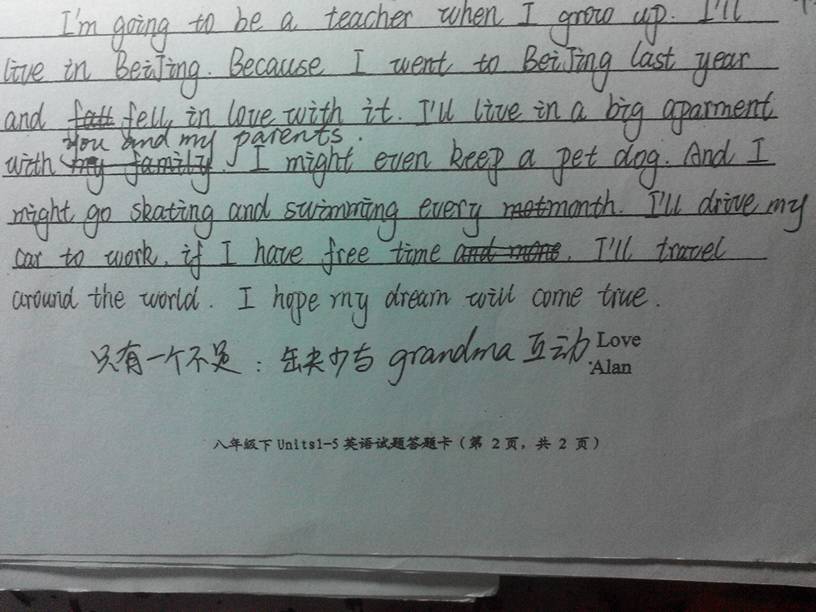 I'm going to be a teacher when I grow up. I'll
live in BeiJing. Because I went to BeiJing last year
and fall fell in love with it. I'll live in a big aparment
you and my parents.
with my family. I might even keep a pet dog. And I
might go skating and swimming every motmonth. I'll drive my
car to work. if I have free time and mone. I'll travel
around the world. I hope my dream will come true.
只有一个不足：缺少与grandma互动 Love
Alan
八年级下Units1-5英语试题答题卡（第 2页，共 2 页）